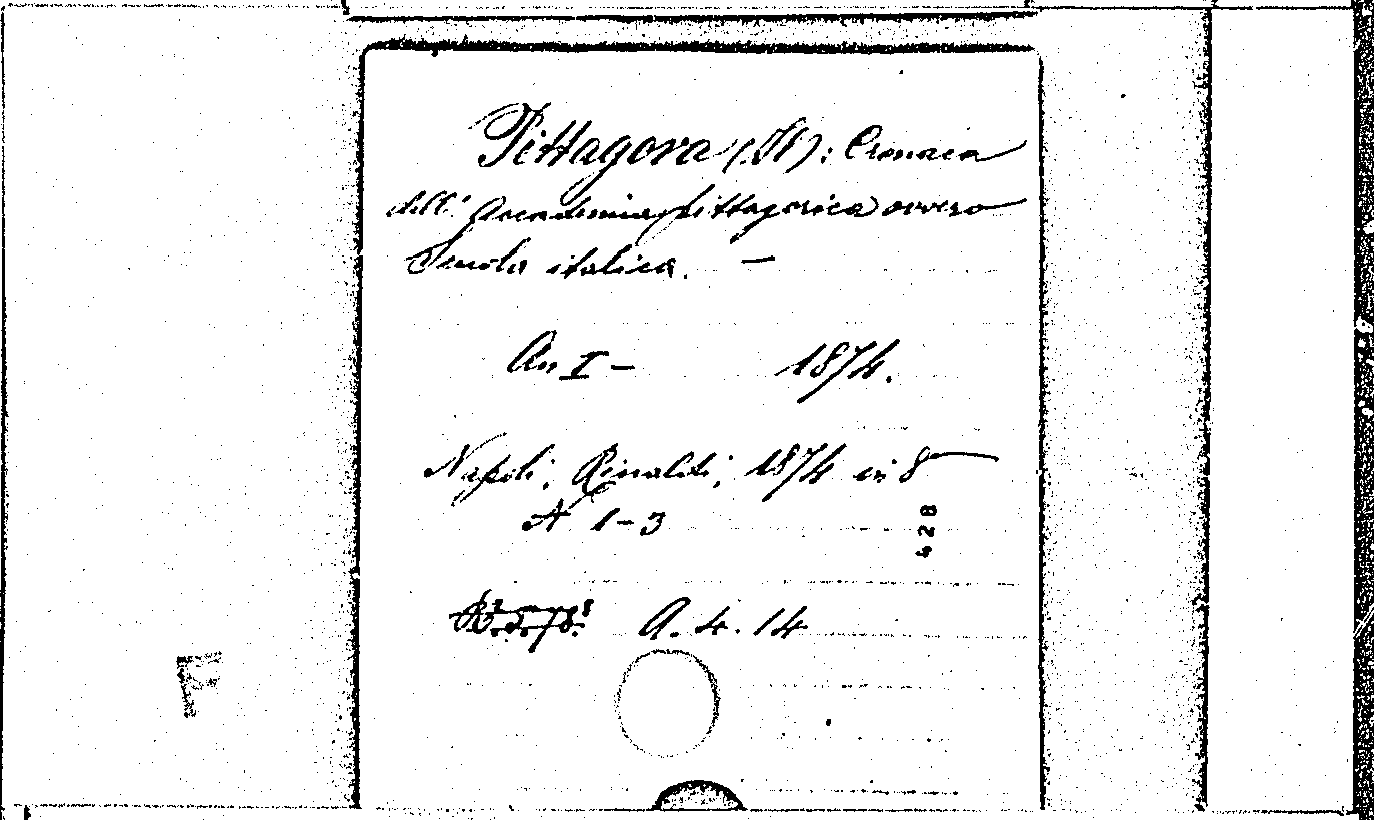 Pittagora (Il): Cronaca
dell' Accademia pittagorica ovvero
Scuola italica. —
An I - 1874.
Napoli, Rinaldi, 1874 in 8
N 1-3
428
A. 4. 14
F